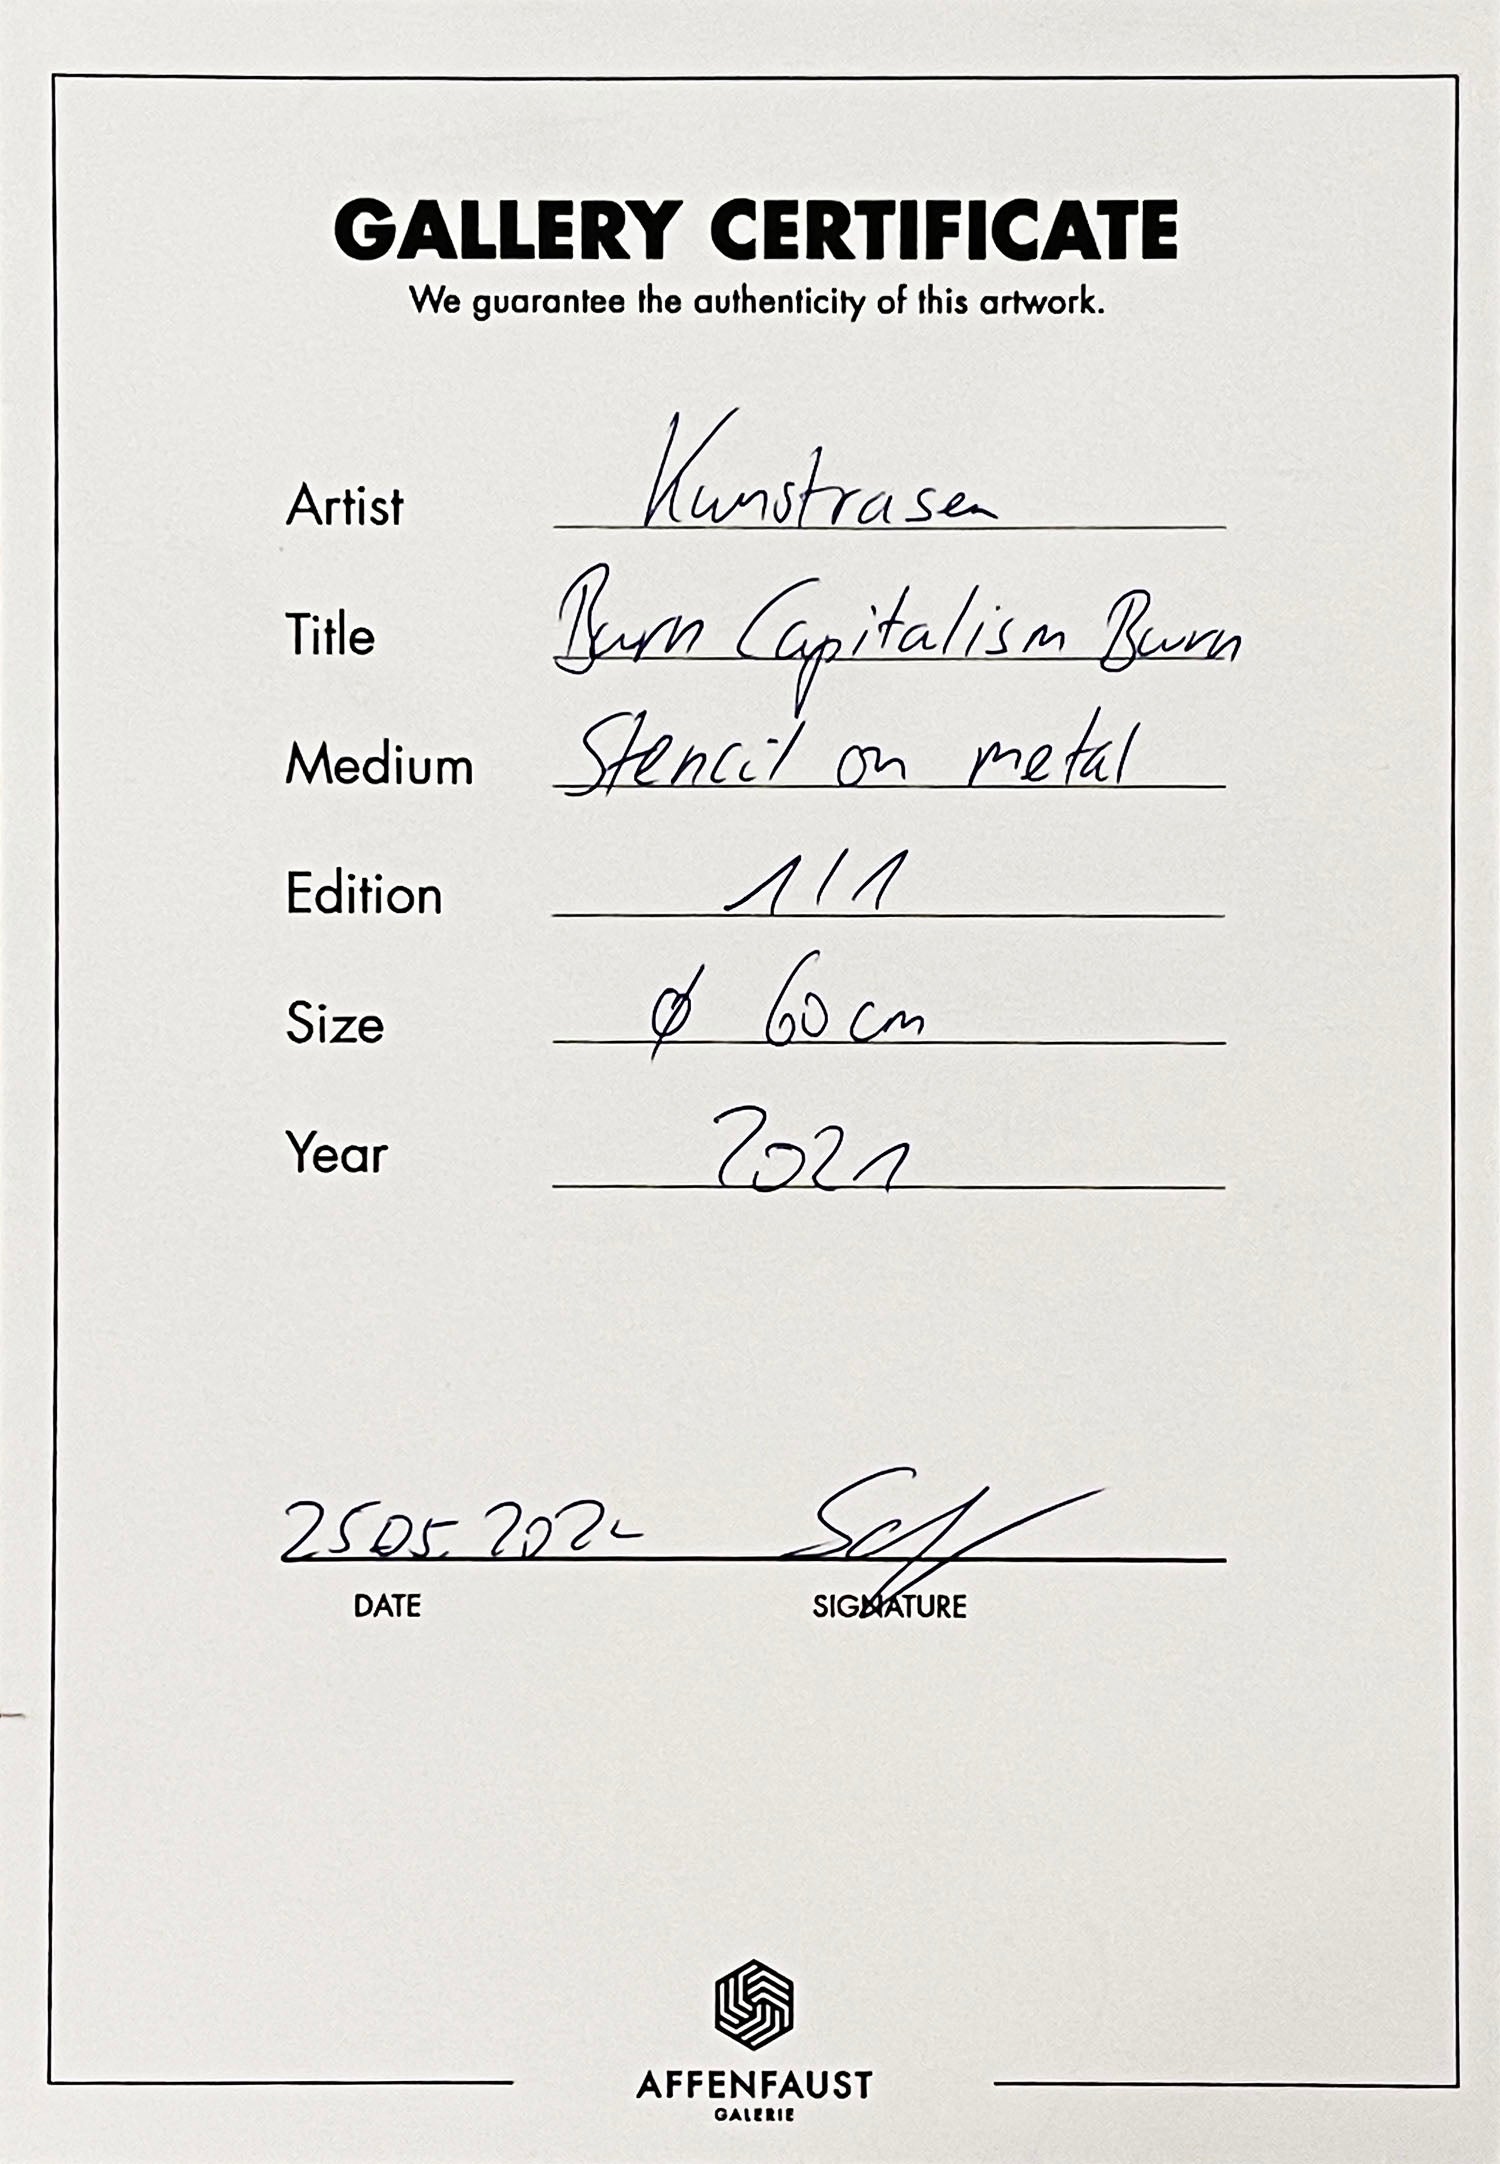 GALLERY CERTIFICATE
We guarantee the authenticity of this artwork.
Artist Kunstrasen
Title Burn Capitalism Burn
Medium Stencil on metal
Edition 1/1
Size ø 60 cm
Year 2021
25.05.2022
DATE SIGNATURE
AFFENFAUST
GALERIE